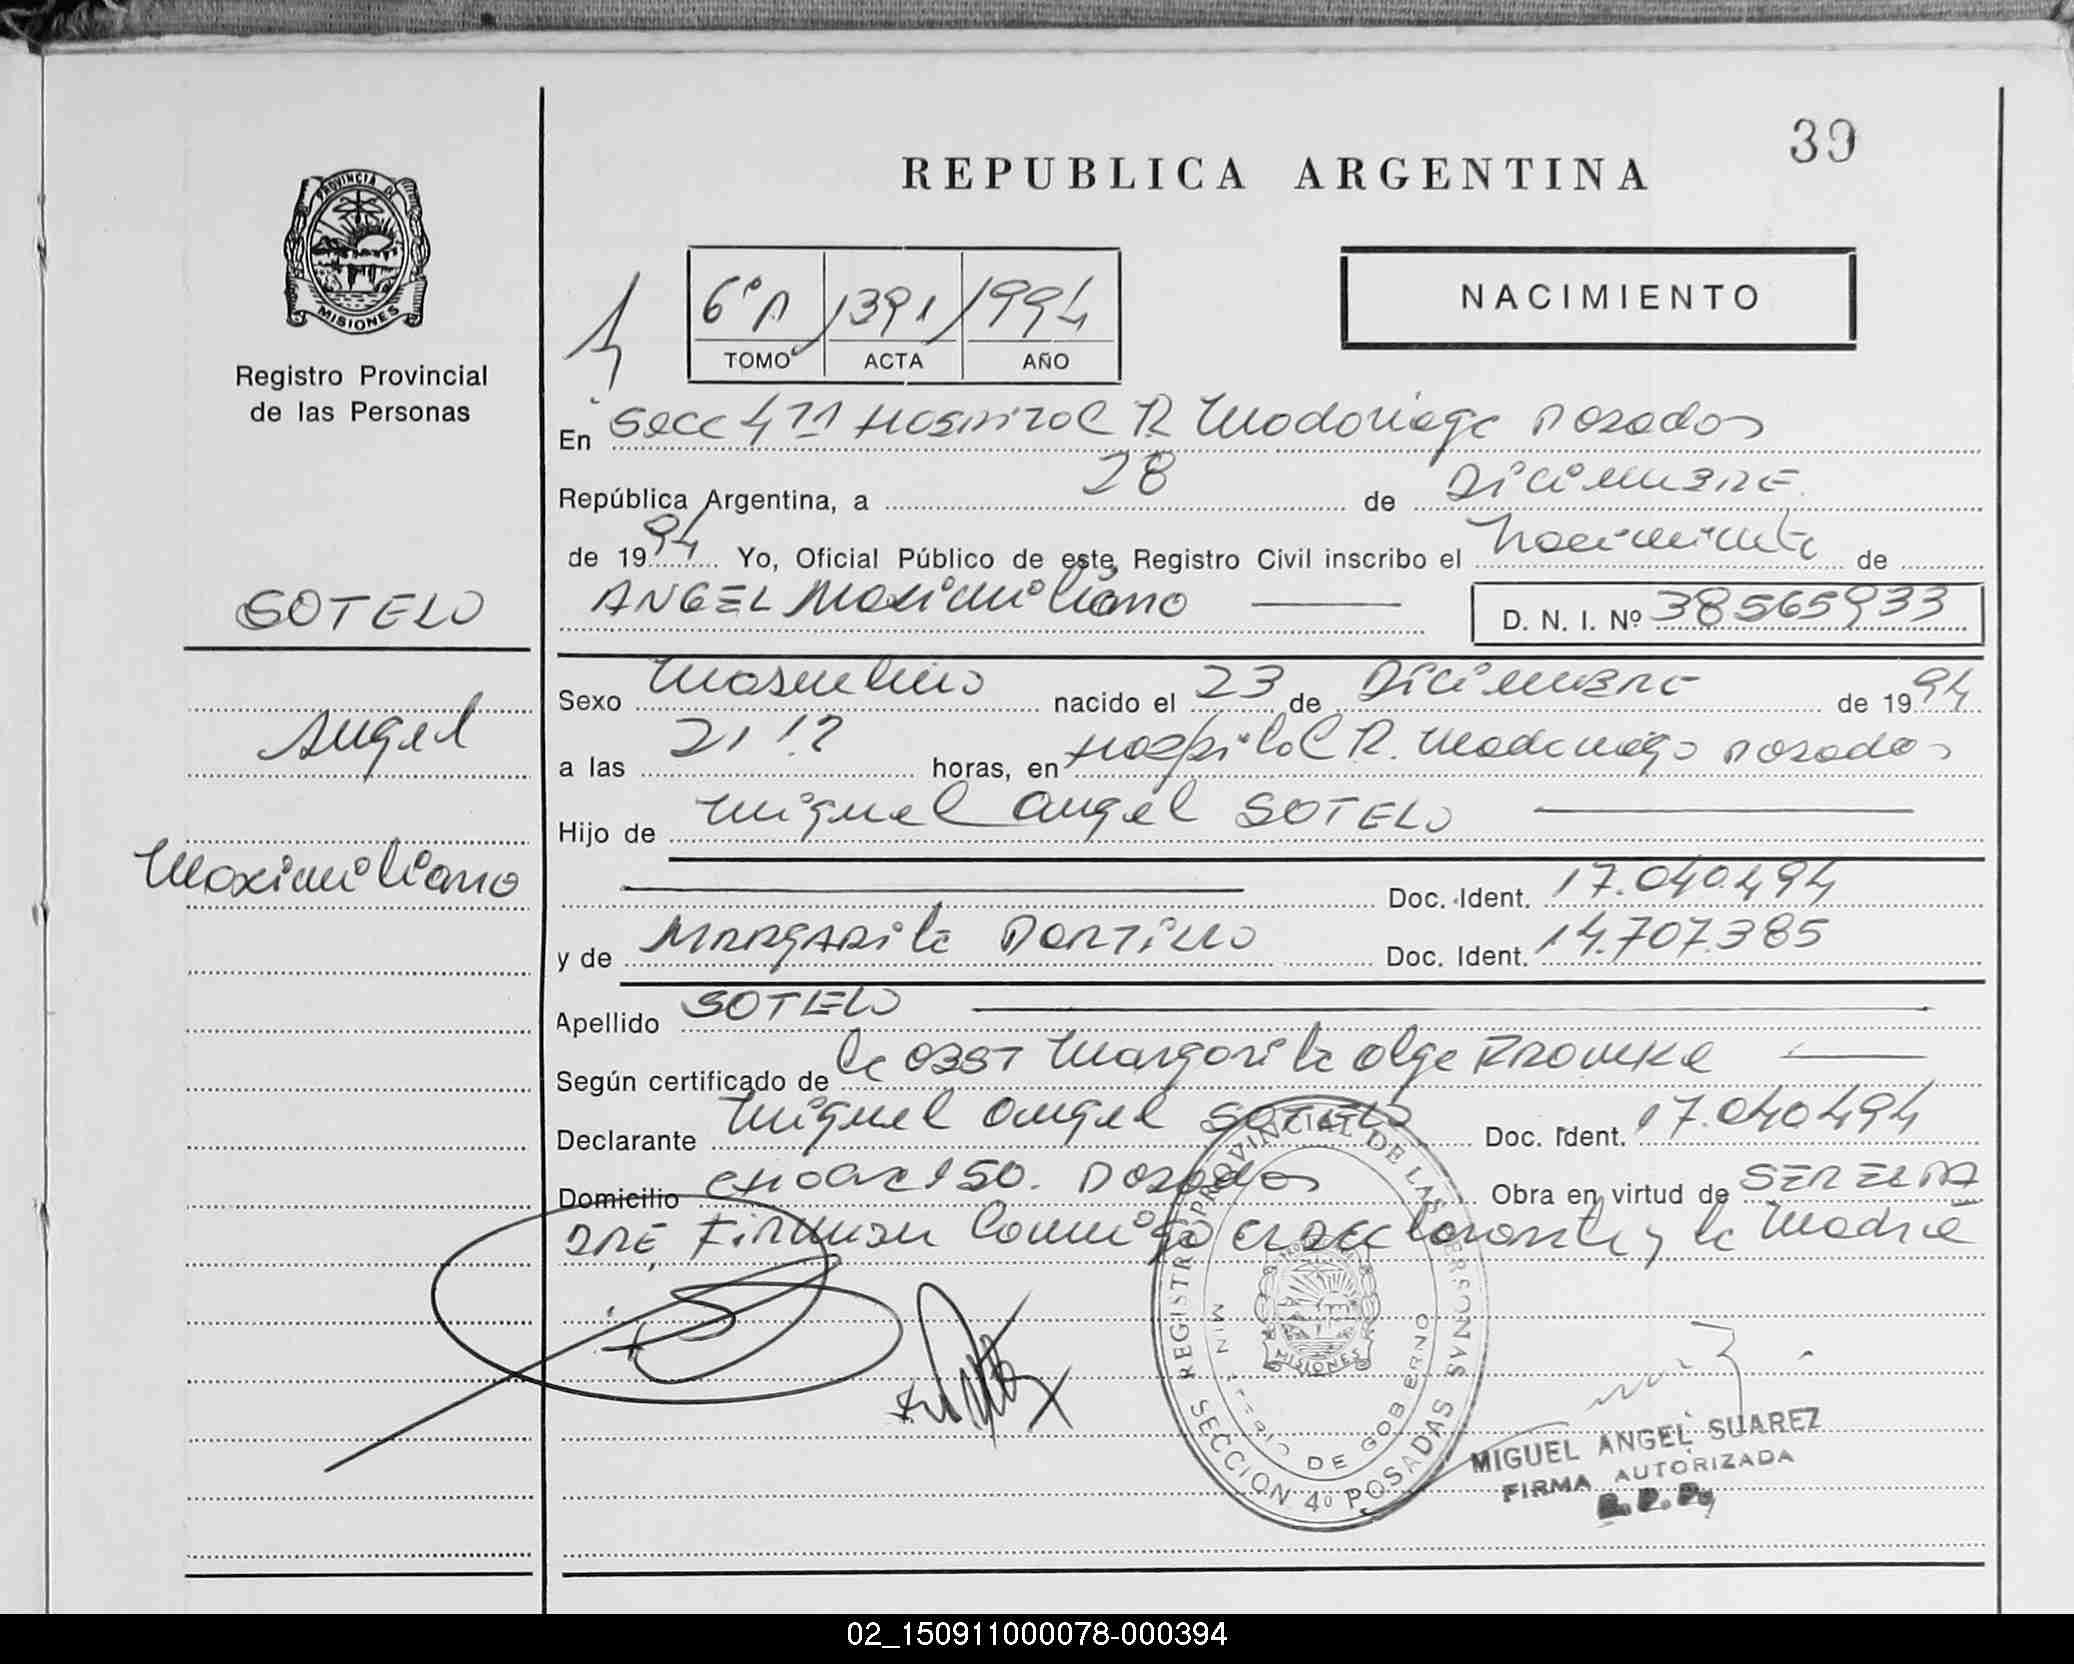 39
REPUBLICA ARGENTINA
PROVINCIA DE
MISIONES
Registro Provincial
de las Personas
NACIMIENTO
6º A 1391 1994
TOMO ACTA AÑO
En Secc 4ta Hospital R Madariaga Posadas
República Argentina, a 28 de Diciembre
de 1994 Yo, Oficial Público de este Registro Civil inscribo el Nacimiento de
SOTELO
ANGEL Maximiliano
D. N. I. Nº 38565933
Sexo Masculino nacido el 23 de Diciembre de 1994
Angel
a las 21 12 horas, en Hospital R. Madariaga Posadas
Hijo de Miguel Angel SOTELO
Maximiliano
Doc. Ident. 17.040.494
y de MARGARita PORTILLO Doc. Ident. 14.707.385
Apellido SOTELO
Según certificado de la OBST Margarita Olga
Declarante Miguel Angel SOTELO Doc. Ident. 17.040494
Domicilio 150. Posadas Obra en virtud de SER EL PA
DRE, Firman Conmigo el declarante y la Madre
REGISTRO PROVINCIAL DE LAS PERSONAS
MINISTERIO DE GOBIERNO
MISIONES
SECCION 4º POSADAS
MIGUEL ANGEL SUAREZ
FIRMA AUTORIZADA
R.P.P.
02_150911000078-000394